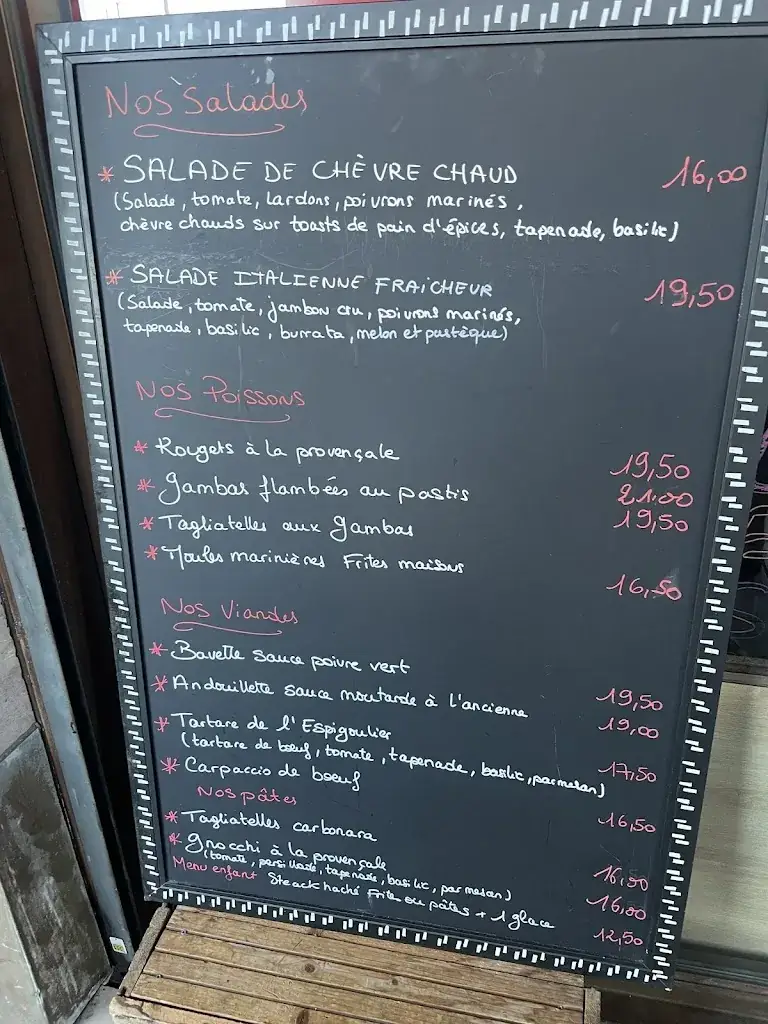 Nos Salades
* SALADE DE CHÈVRE CHAUD 16,00
(Salade, tomate, lardons, poivrons marinés,
chèvre chauds sur toasts de pain d'épices, tapenade, basilic)
* SALADE ITALIENNE FRAICHEUR 19,50
(Salade, tomate, jambon cru, poivrons marinés,
tapenade, basilic, burrata, melon et pastèque)
Nos Poissons
* Rougets à la provençale 19,50
* Gambas flambées au pastis 21.00
* Tagliatelles aux gambas 19,50
* Moules marinières Frites maisons 16,50
Nos Viandes
* Bavette sauce poivre vert 19,50
* Andouillette sauce moutarde à l'ancienne 19,00
* Tartare de l'Espigoulier 17,50
(tartare de bœuf, tomate, tapenade, basilic, parmesan)
* Carpaccio de boeuf 16,50
Nos pâtes
* Tagliatelles carbonara 16,00
* Gnocchi à la provençale 16,00
(tomate, persillade, tapenade, basilic, parmesan)
Menu enfant Steack haché Frites ou pâtes + 1 glace 12,50